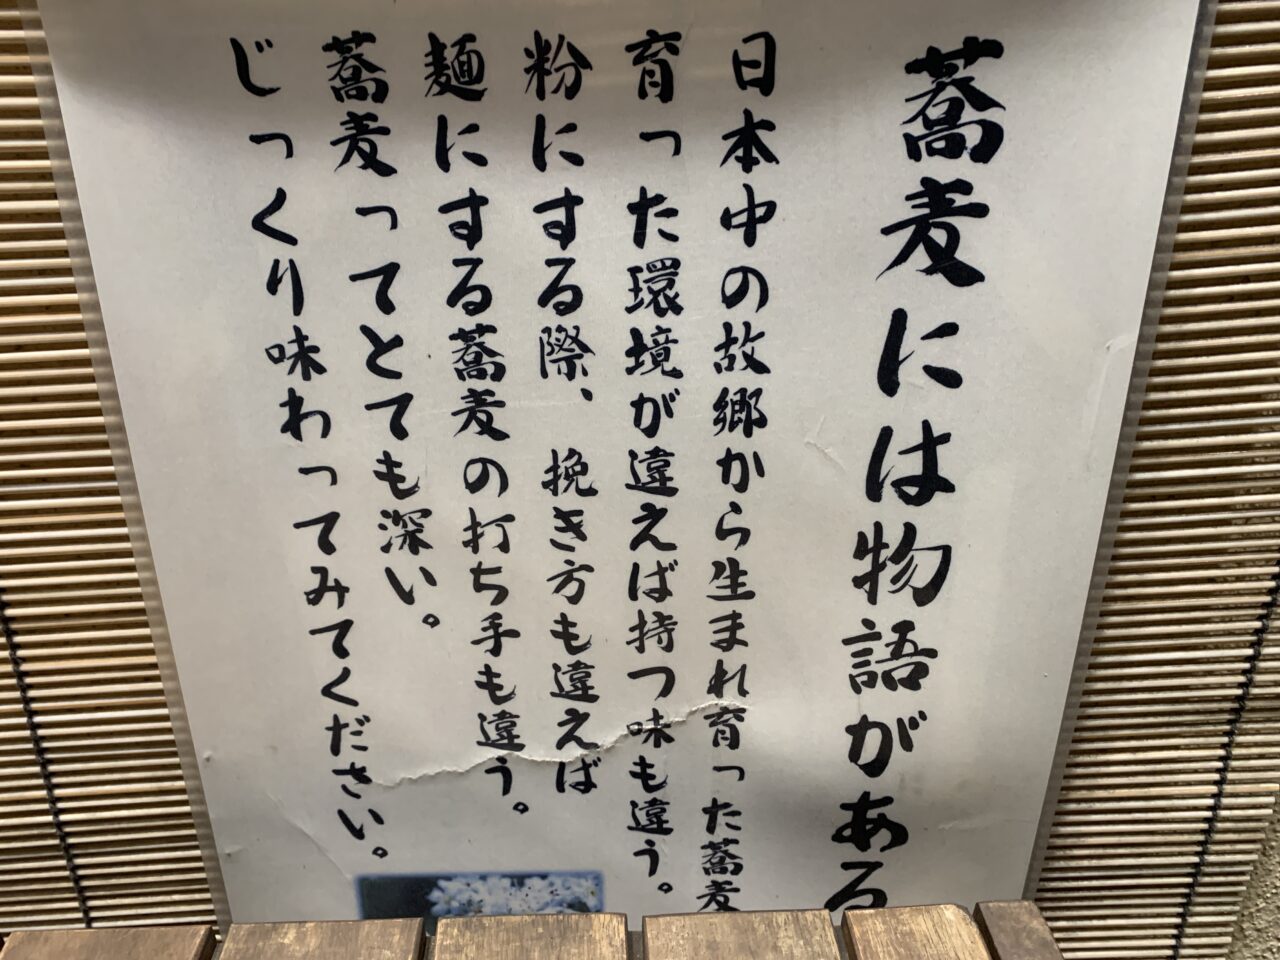 蕎麦には物語がある
日本中の故郷から生まれ育った蕎麦
育った環境が違えば持つ味も違う。
粉にする際、挽き方も違えば
麺にする蕎麦の打ち手も違う。
蕎麦ってとても深い。
じっくり味わってみてください。